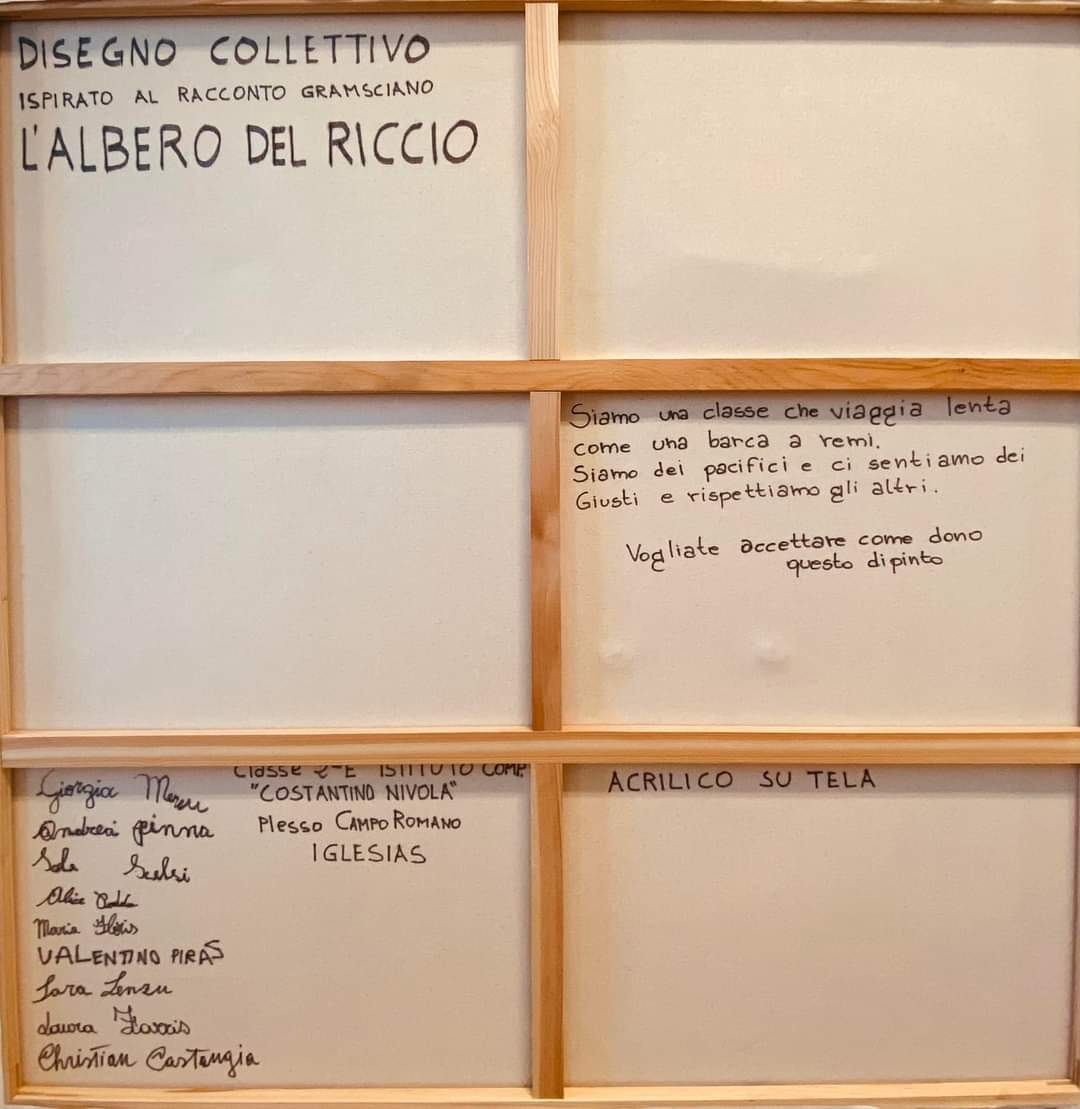 DISEGNO COLLETTIVO
ISPIRATO AL RACCONTO GRAMSCIANO
L'ALBERO DEL RICCIO
Siamo una classe che viaggia lenta
come una barca a remi.
Siamo dei pacifici e ci sentiamo dei
Giusti e rispettiamo gli altri.
Vogliate accettare come dono
questo dipinto
Giorgia
Andrea Pinna
Alice
Maria Floris
VALENTINO PIRAS
Sara Lenzu
Laura Floris
Christian Castangia
Classe 2ªE ISTITUTO COMP.
"COSTANTINO NIVOLA"
Plesso CAMPO ROMANO
IGLESIAS
ACRILICO SU TELA